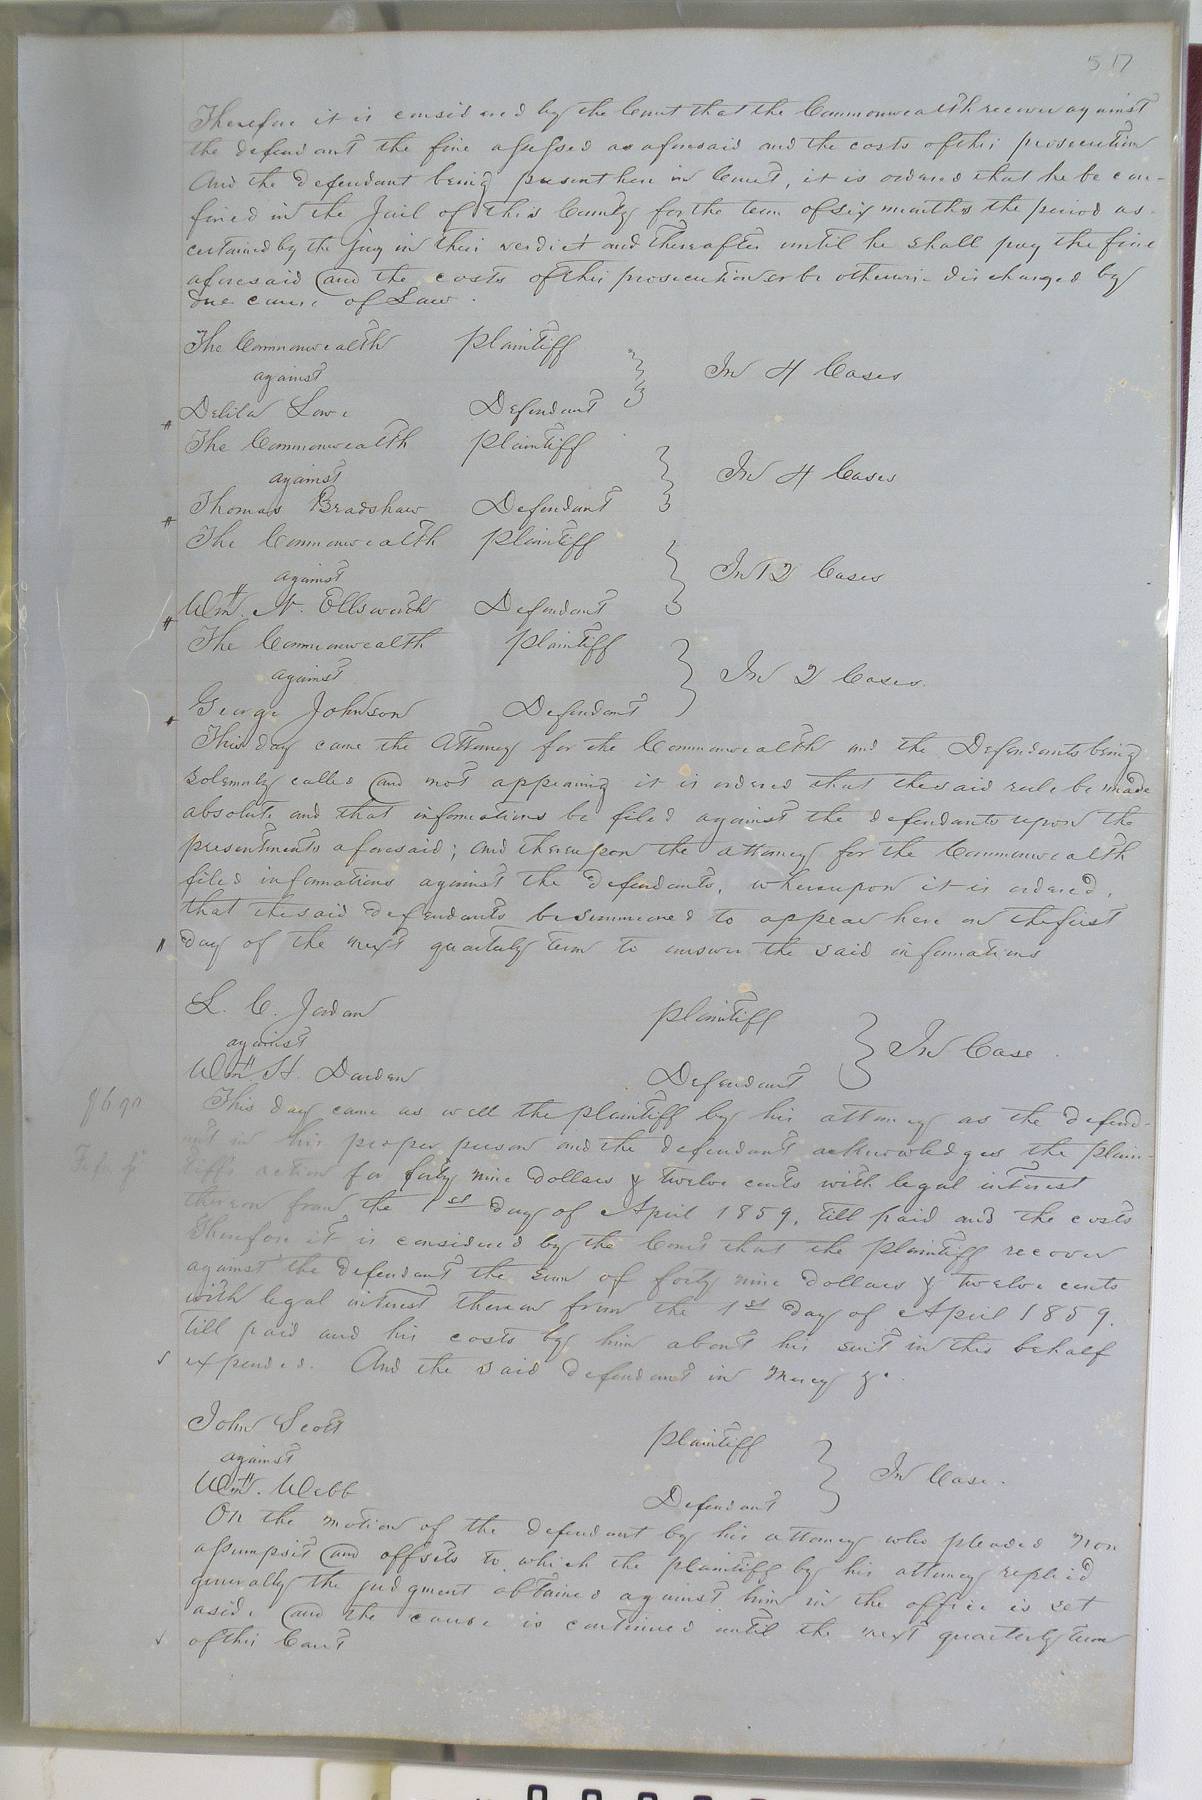 517
Therefore it is considered by the Court that the Commonwealth recover against
the defendant the fine assessed as aforesaid and the costs of this prosecution
And the defendant being present here in Court, it is ordered that he be con-
fined in the Jail of this County for the term of six months the period as-
certained by the jury in their verdict and thereafter until he shall pay the fine
aforesaid and the costs of this prosecution or be otherwise discharged by
due course of Law.
The Commonwealth Plaintiff
against In 4 Cases
Delila Lowe Defendant
The Commonwealth Plaintiff
against In 4 Cases
Thomas Bradshaw Defendant
The Commonwealth Plaintiff
against In 12 Cases
Wm. N. Ellsworth Defendant
The Commonwealth Plaintiff
against In 2 Cases.
George Johnson Defendant
This day came the Attorney for the Commonwealth and the Defendants being
solemnly called and not appearing it is ordered that the said rule be made
absolute and that informations be filed against the defendants upon the
presentments aforesaid; and thereupon the attorney for the Commonwealth
filed informations against the defendants, whereupon it is ordered,
that the said defendants be summoned to appear here on the first
day of the next quarterly term to answer the said informations
L. C. Jordan Plaintiff
against In Case.
Wm H. Darden Defendant
This day came as well the plaintiff by his attorney as the defend-
ant in his proper person and the defendant acknowledges the plain-
tiffs action for forty nine dollars & twelve cents with legal interest
thereon from the 1st day of April 1859, till paid and the costs
Therefore it is considered by the Court that the plaintiff recover
against the defendant the sum of forty nine dollars & twelve cents
with legal interest thereon from the 1st day of April 1859.
till paid and his costs by him about his suit in this behalf
expended. And the said defendant in Mercy &c.
John Scott Plaintiff
against In Case.
Wm. Webb. Defendant
On the motion of the defendant by his attorney who pleaded Non
assumpsit and offsets to which the plaintiff by his attorney replied
generally the judgment obtained against him in the office is set
aside and the cause is continued until the next quarterly term
of this Court